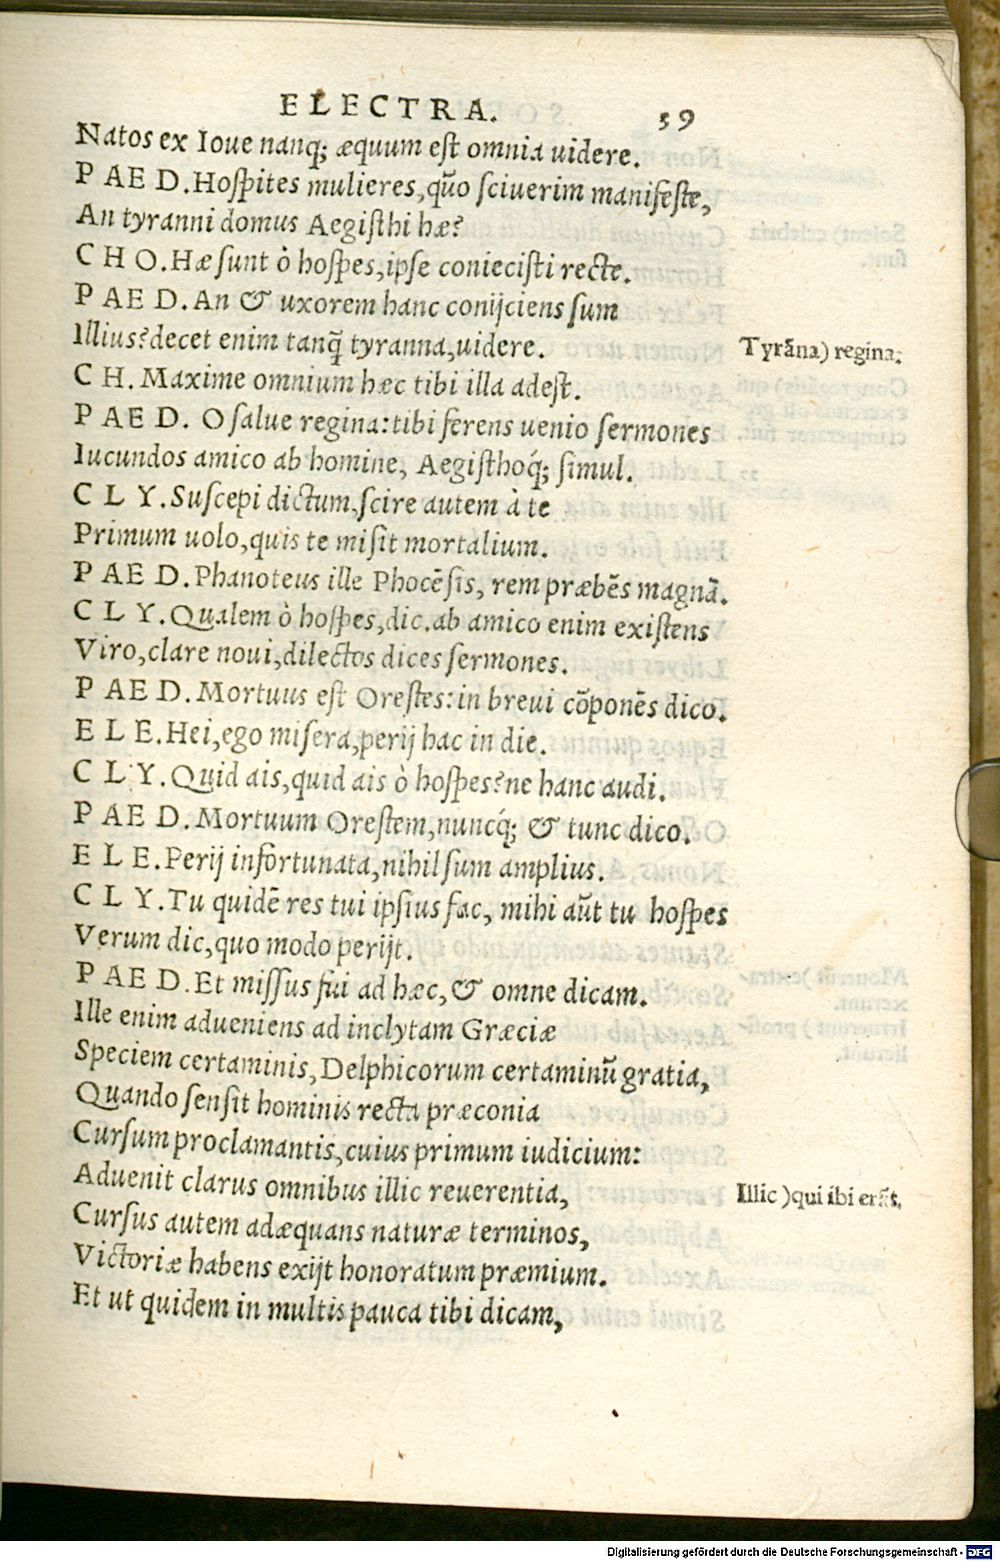 ELECTRA. 59
Natos ex Ioue nanq; æquum eſt omnia uidere.
PAED. Hoſpites mulieres, qũo ſciuerim manifeſte,
An tyranni domus Aegiſthi hæ?
CHO. Hæ ſunt ò hoſpes, ipſe conieciſti recte.
PAED. An & uxorem hanc conijciens ſum
Illius? decet enim tanq̃ tyranna, uidere.
Tyrãna) regina.
CH. Maxime omnium hæc tibi illa adeſt.
PAED. O ſalue regina: tibi ferens uenio ſermones
Iucundos amico ab homine, Aegiſthoq́; ſimul.
CLY. Suſcepi dictum. ſcire autem à te
Primum uolo, quis te miſit mortalium.
PAED. Phanoteus ille Phocẽſis, rem præbẽs magnã.
CLY. Qualem ò hoſpes, dic. ab amico enim exiſtens
Viro, clare noui, dilectos dices ſermones.
PAED. Mortuus eſt Oreſtes: in breui cõponẽs dico.
ELE. Hei, ego miſera, perij hac in die.
CLY. Quid ais, quid ais ò hoſpes? ne hanc audi.
PAED. Mortuum Oreſtem, nuncq́; & tunc dico.
ELE. Perij infortunata, nihil ſum amplius.
CLY. Tu quidẽ res tui ipſius fac, mihi aũt tu hoſpes
Verum dic, quo modo perijt.
PAED. Et miſſus fui ad hæc, & omne dicam.
Ille enim adueniens ad inclytam Græciæ
Speciem certaminis, Delphicorum certaminũ gratia,
Quando ſenſit hominis recta præconia
Curſum proclamantis, cuius primum iudicium:
Aduenit clarus omnibus illic reuerentia,
Illic) qui ibi erãt.
Curſus autem adæquans naturæ terminos,
Victoriæ habens exijt honoratum præmium.
Et ut quidem in multis pauca tibi dicam,
Digitalisierung gefördert durch die Deutsche Forschungsgemeinschaft - DFG